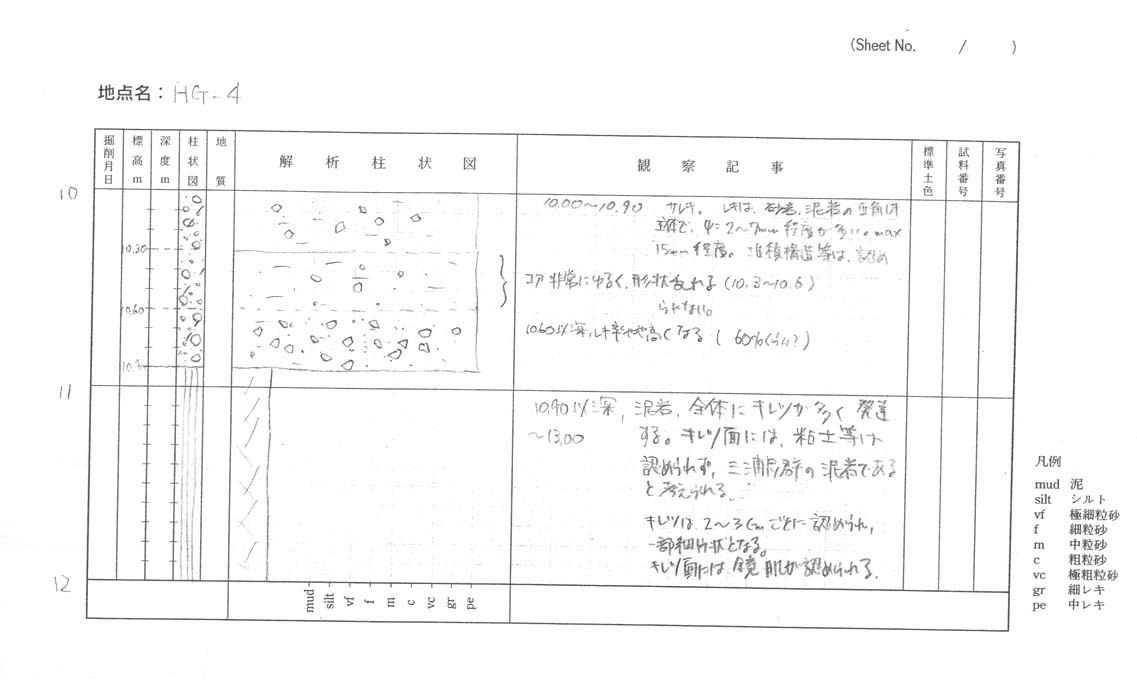 (Sheet No. / )
地点名：HG-4
掘削月日 標高m 深度m 柱状図 地質 解析柱状図 観察記事 標準土色 試料番号 写真番号
10
10.00～10.90 サレキ。レキは、砂岩、泥岩の亜角レキ
主体で、φ=2～7mm程度が多い。max
15mm程度。堆積構造等は、認め
10.30
コア非常にゆるく、形状乱れる (10.3～10.6)
られない。
10.60
10.60以深、レキ率やや高くなる ( 60%くらい?)
10.9
11
10.90以深, 泥岩, 全体にキレツが多く発達
～13.00 する。キレツ面には、粘土等は
認められず, 三浦層群の泥岩である
と考えられる。
キレツは 2～3cmごとに認められ,
一部細片状となる。
キレツ面には鏡肌が認められる.
12
mud silt vf f m c vc gr pe
凡例
mud 泥
silt シルト
vf 極細粒砂
f 細粒砂
m 中粒砂
c 粗粒砂
vc 極粗粒砂
gr 細レキ
pe 中レキ